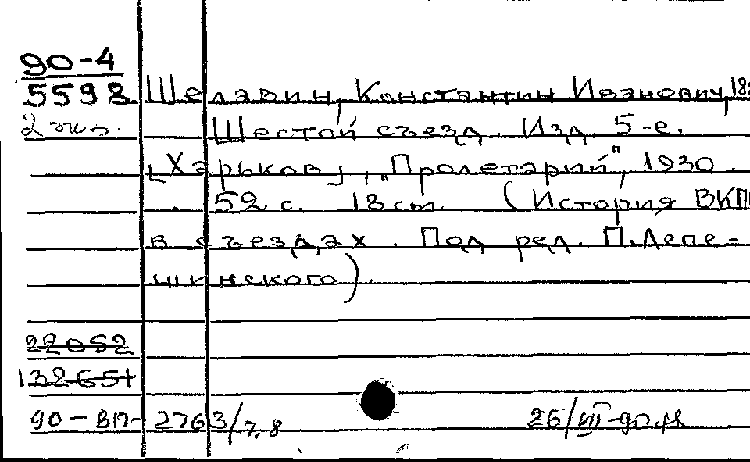 90-4
5598 Шелавин, Константин Иванович, 18
2 экз. Шестой съезд. Изд. 5-е.
[Харьков], "Пролетарий", 1930.
52 с. 18 см. (История ВКП
в съездах. Под ред. П. Лепе-
шинского).
22052
132651
90-ВП-2763/7,8 26/VII-90